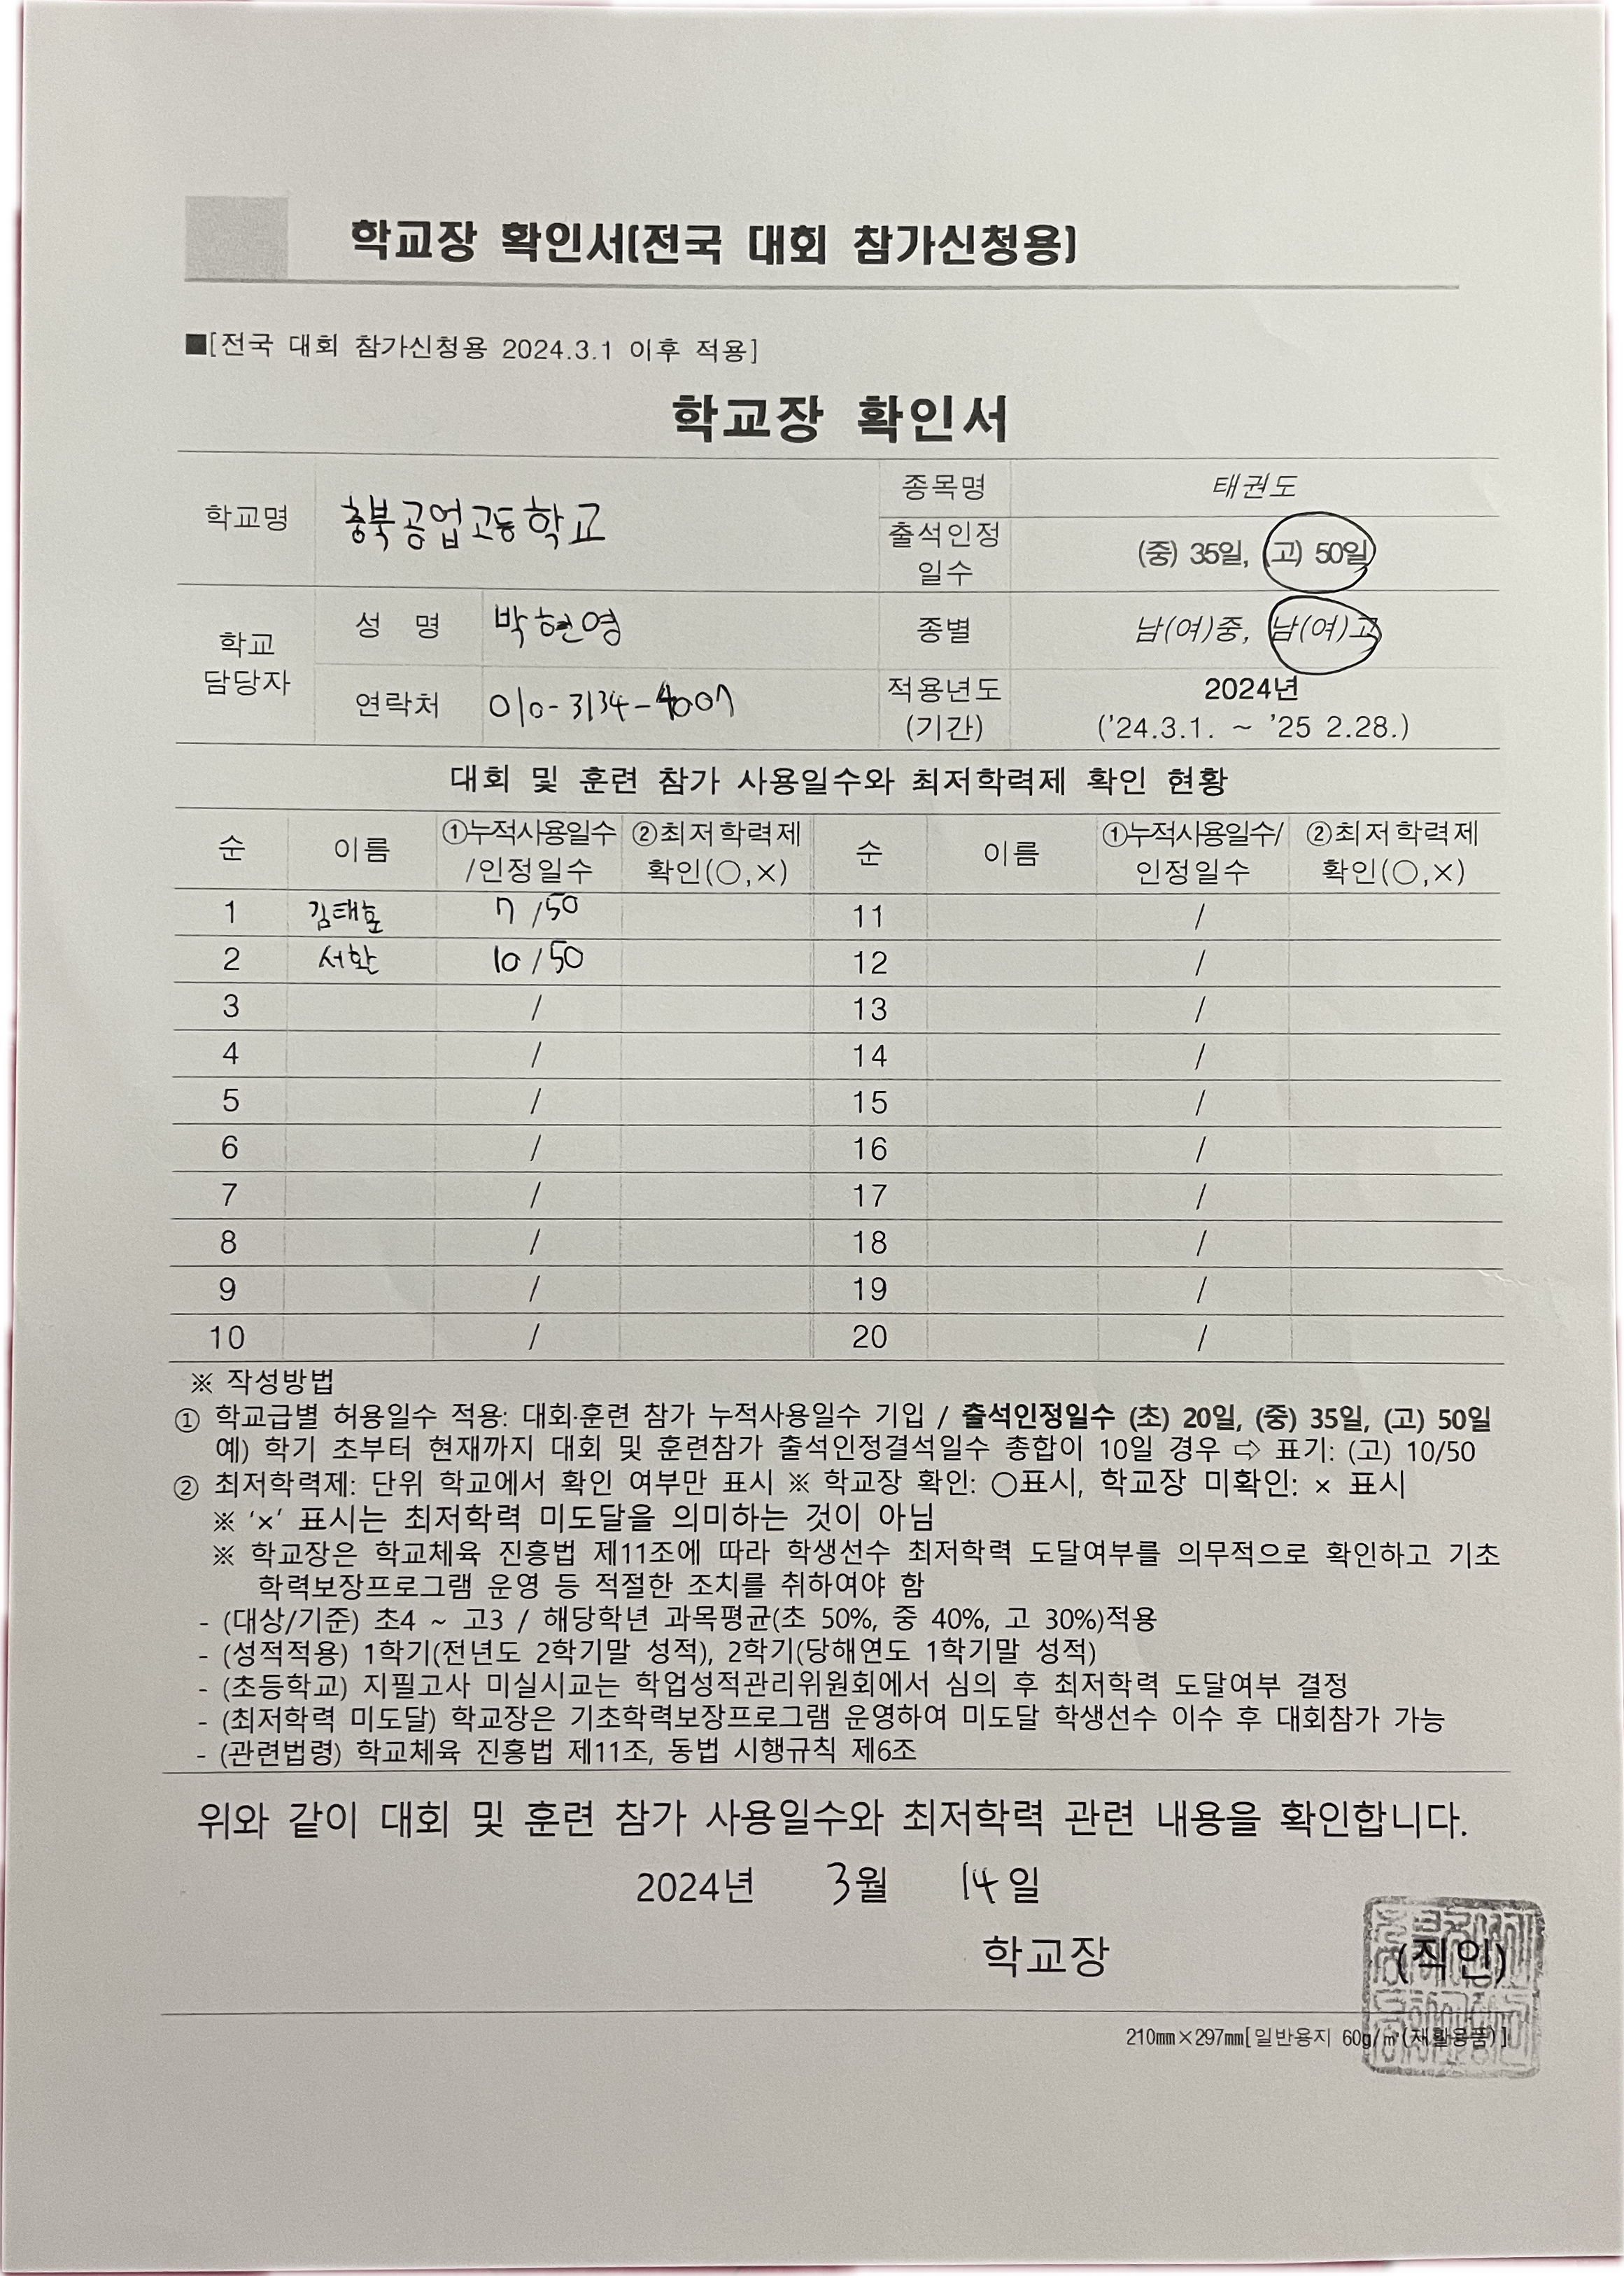 학교장 확인서(전국 대회 참가신청용)
■[전국 대회 참가신청용 2024.3.1 이후 적용]
학교장 확인서
학교명 충북공업고등학교 종목명 태권도
출석인정 일수 (중) 35일, (고) 50일
학교 담당자 성 명 박현영 종별 남(여)중, 남(여)고
연락처 010-3134-4007 적용년도 (기간) 2024년 ('24.3.1. ~ '25 2.28.)
대회 및 훈련 참가 사용일수와 최저학력제 확인 현황
순 이름 ①누적사용일수/인정일수 ②최저학력제 확인(○,×) 순 이름 ①누적사용일수/인정일수 ②최저학력제 확인(○,×)
1 김태호 7/50 11 /
2 서환 10/50 12 /
3 / 13 /
4 / 14 /
5 / 15 /
6 / 16 /
7 / 17 /
8 / 18 /
9 / 19 /
10 / 20 /
※ 작성방법
① 학교급별 허용일수 적용: 대회·훈련 참가 누적사용일수 기입 / 출석인정일수 (초) 20일, (중) 35일, (고) 50일
예) 학기 초부터 현재까지 대회 및 훈련참가 출석인정결석일수 총합이 10일 경우 ⇨ 표기: (고) 10/50
② 최저학력제: 단위 학교에서 확인 여부만 표시 ※ 학교장 확인: ○표시, 학교장 미확인: × 표시
※ '×' 표시는 최저학력 미도달을 의미하는 것이 아님
※ 학교장은 학교체육 진흥법 제11조에 따라 학생선수 최저학력 도달여부를 의무적으로 확인하고 기초
학력보장프로그램 운영 등 적절한 조치를 취하여야 함
- (대상/기준) 초4 ~ 고3 / 해당학년 과목평균(초 50%, 중 40%, 고 30%)적용
- (성적적용) 1학기(전년도 2학기말 성적), 2학기(당해연도 1학기말 성적)
- (초등학교) 지필고사 미실시교는 학업성적관리위원회에서 심의 후 최저학력 도달여부 결정
- (최저학력 미도달) 학교장은 기초학력보장프로그램 운영하여 미도달 학생선수 이수 후 대회참가 가능
- (관련법령) 학교체육 진흥법 제11조, 동법 시행규칙 제6조
위와 같이 대회 및 훈련 참가 사용일수와 최저학력 관련 내용을 확인합니다.
2024년 3월 14일
학교장 (직인)
210㎜×297㎜[일반용지 60g/㎡(재활용품)]